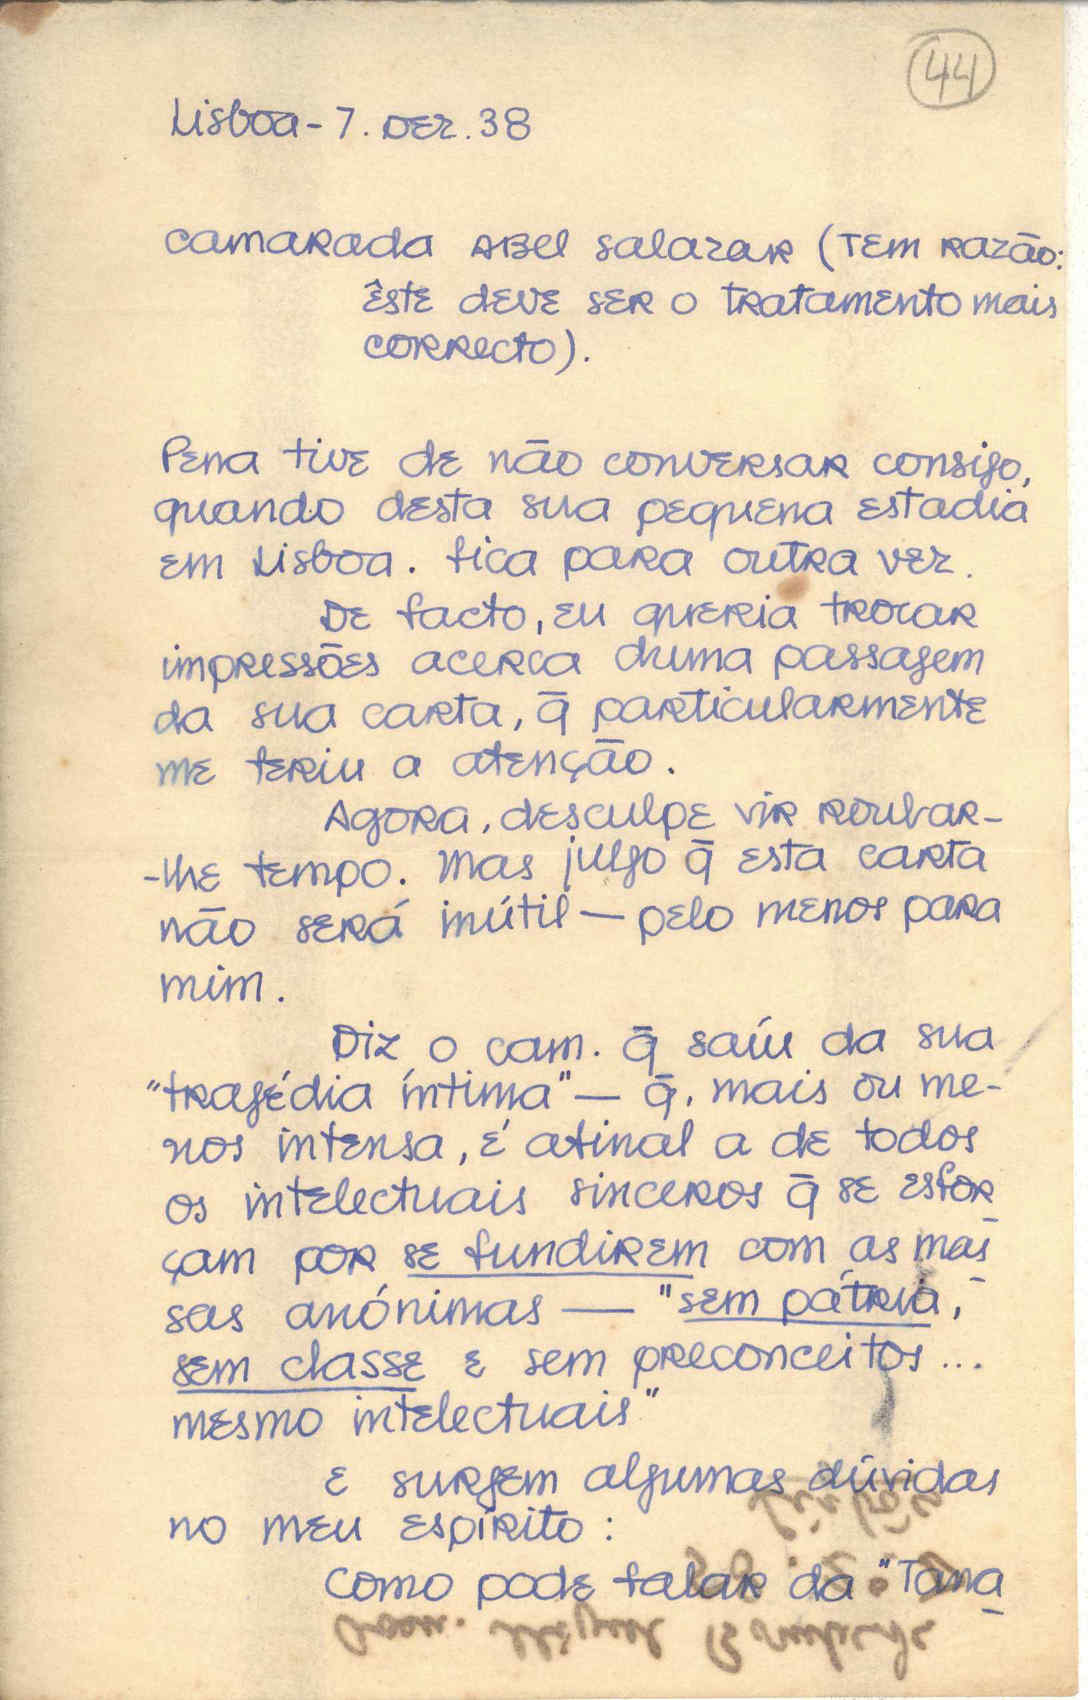 44
Lisboa - 7. Dez. 38
Camarada Abel Salazar (Tem razão:
êste deve ser o tratamento mais
correcto).
Pena tive de não conversar consigo,
quando desta sua pequena estadia
em Lisboa. Fica para outra vez.
De facto, eu queria trocar
impressões acerca duma passagem
da sua carta, q̄ particularmente
me feriu a atenção.
Agora, desculpe vir roubar-
-lhe tempo. Mas julgo q̄ esta carta
não será inútil — pelo menos para
mim.
Diz o cam. q̄ saíu da sua
"tragédia íntima" — q̄, mais ou me-
nos intensa, é afinal a de todos
os intelectuais sinceros q̄ se esfor-
çam por se fundirem com as mas-
sas anónimas — "sem pátria,
sem classe e sem preconceitos...
mesmo intelectuais"
E surgem algumas dúvidas
no meu espírito:
Como pode falar da "Tama